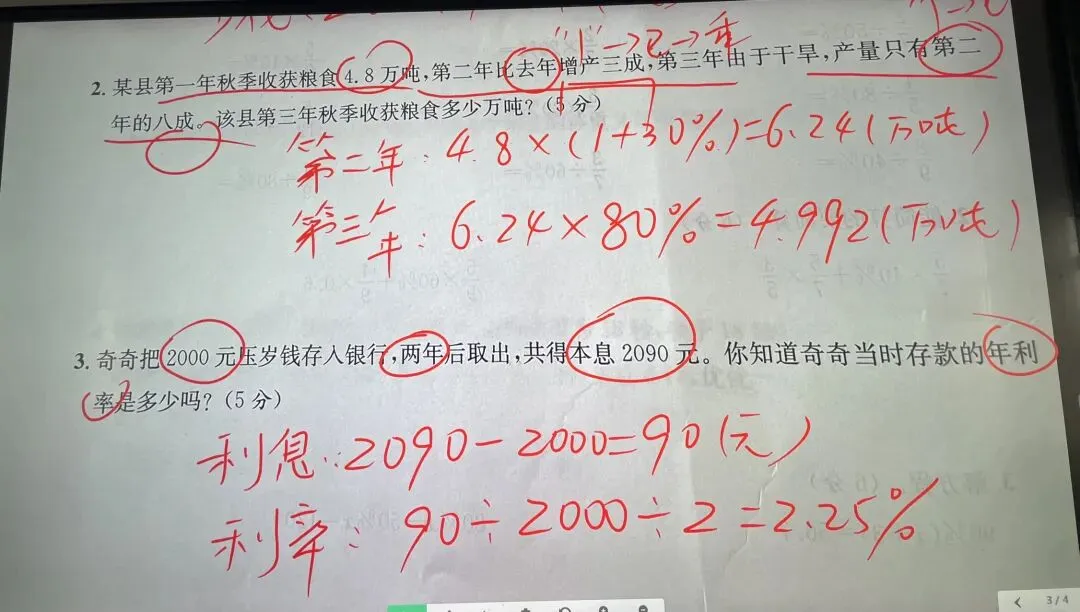 "1"→已→乘
2. 某县第一年秋季收获粮食4.8万吨,第二年比去年增产三成,第三年由于干旱,产量只有第二
年的八成。该县第三年秋季收获粮食多少万吨?(5分)
第二年:4.8×(1+30%)=6.24(万吨)
第三年:6.24×80%=4.992(万吨)
3. 奇奇把2000元压岁钱存入银行,两年后取出,共得本息2090元。你知道奇奇当时存款的年利
率是多少吗?(5分)
利息:2090-2000=90(元)
利率:90÷2000÷2=2.25%
3/4